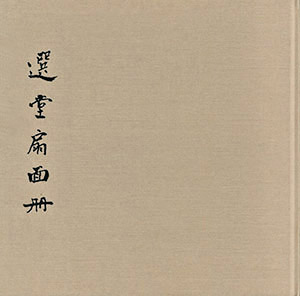 選堂扇面冊